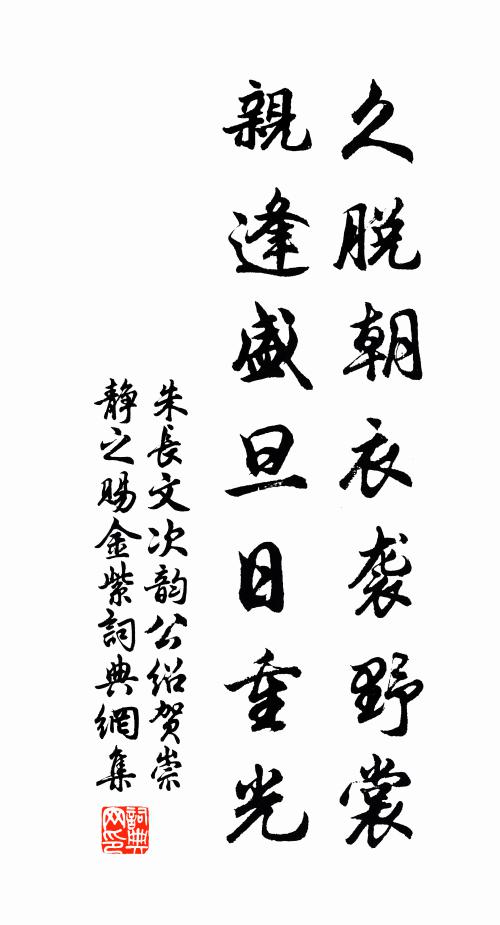 久脱朝衣袭野裳
親逢盛旦日重光
朱長文次韵公绍贺崇
静之賜金紫詞典網集
詞典
网印